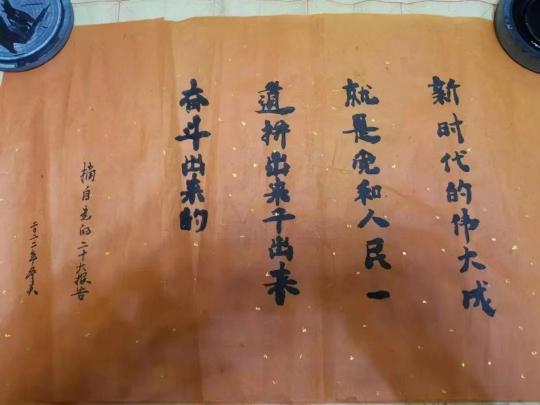 新时代的伟大成
就是党和人民一
道拼出来干出来
奋斗出来的
摘自党的二十大报告
二〇二二年